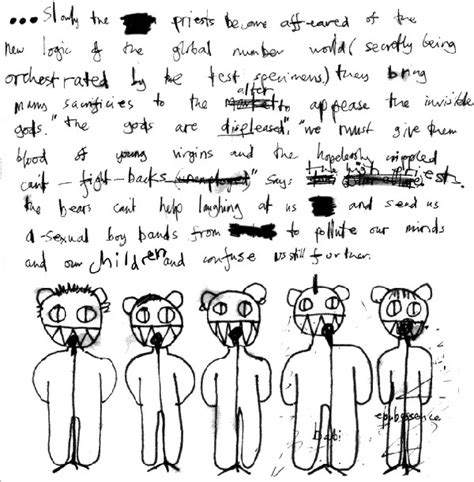 ...Slowly the priests become affeared of the
new logic of the global number world (secretly being
orchestrated by the test specimens.) they bring
many sacrifices to the alter to appease the invisible
gods." "the gods are displeased", "we must give them
blood of young virgins and the hopelessly crippled
can't-fight-backs unemployed" says the high priest.
the bears can't help laughing at us and send us
a-sexual boy bands from to pollute our minds
and our children and confuse us still further.
babi